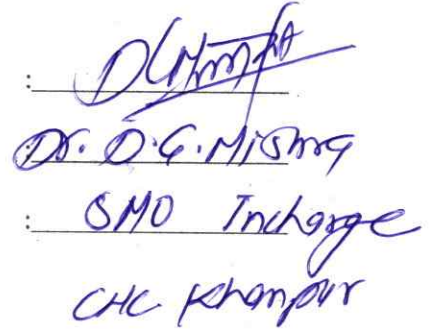 :
Dr. D.G. Mishra
: SMO Incharge
CHC Khanpur